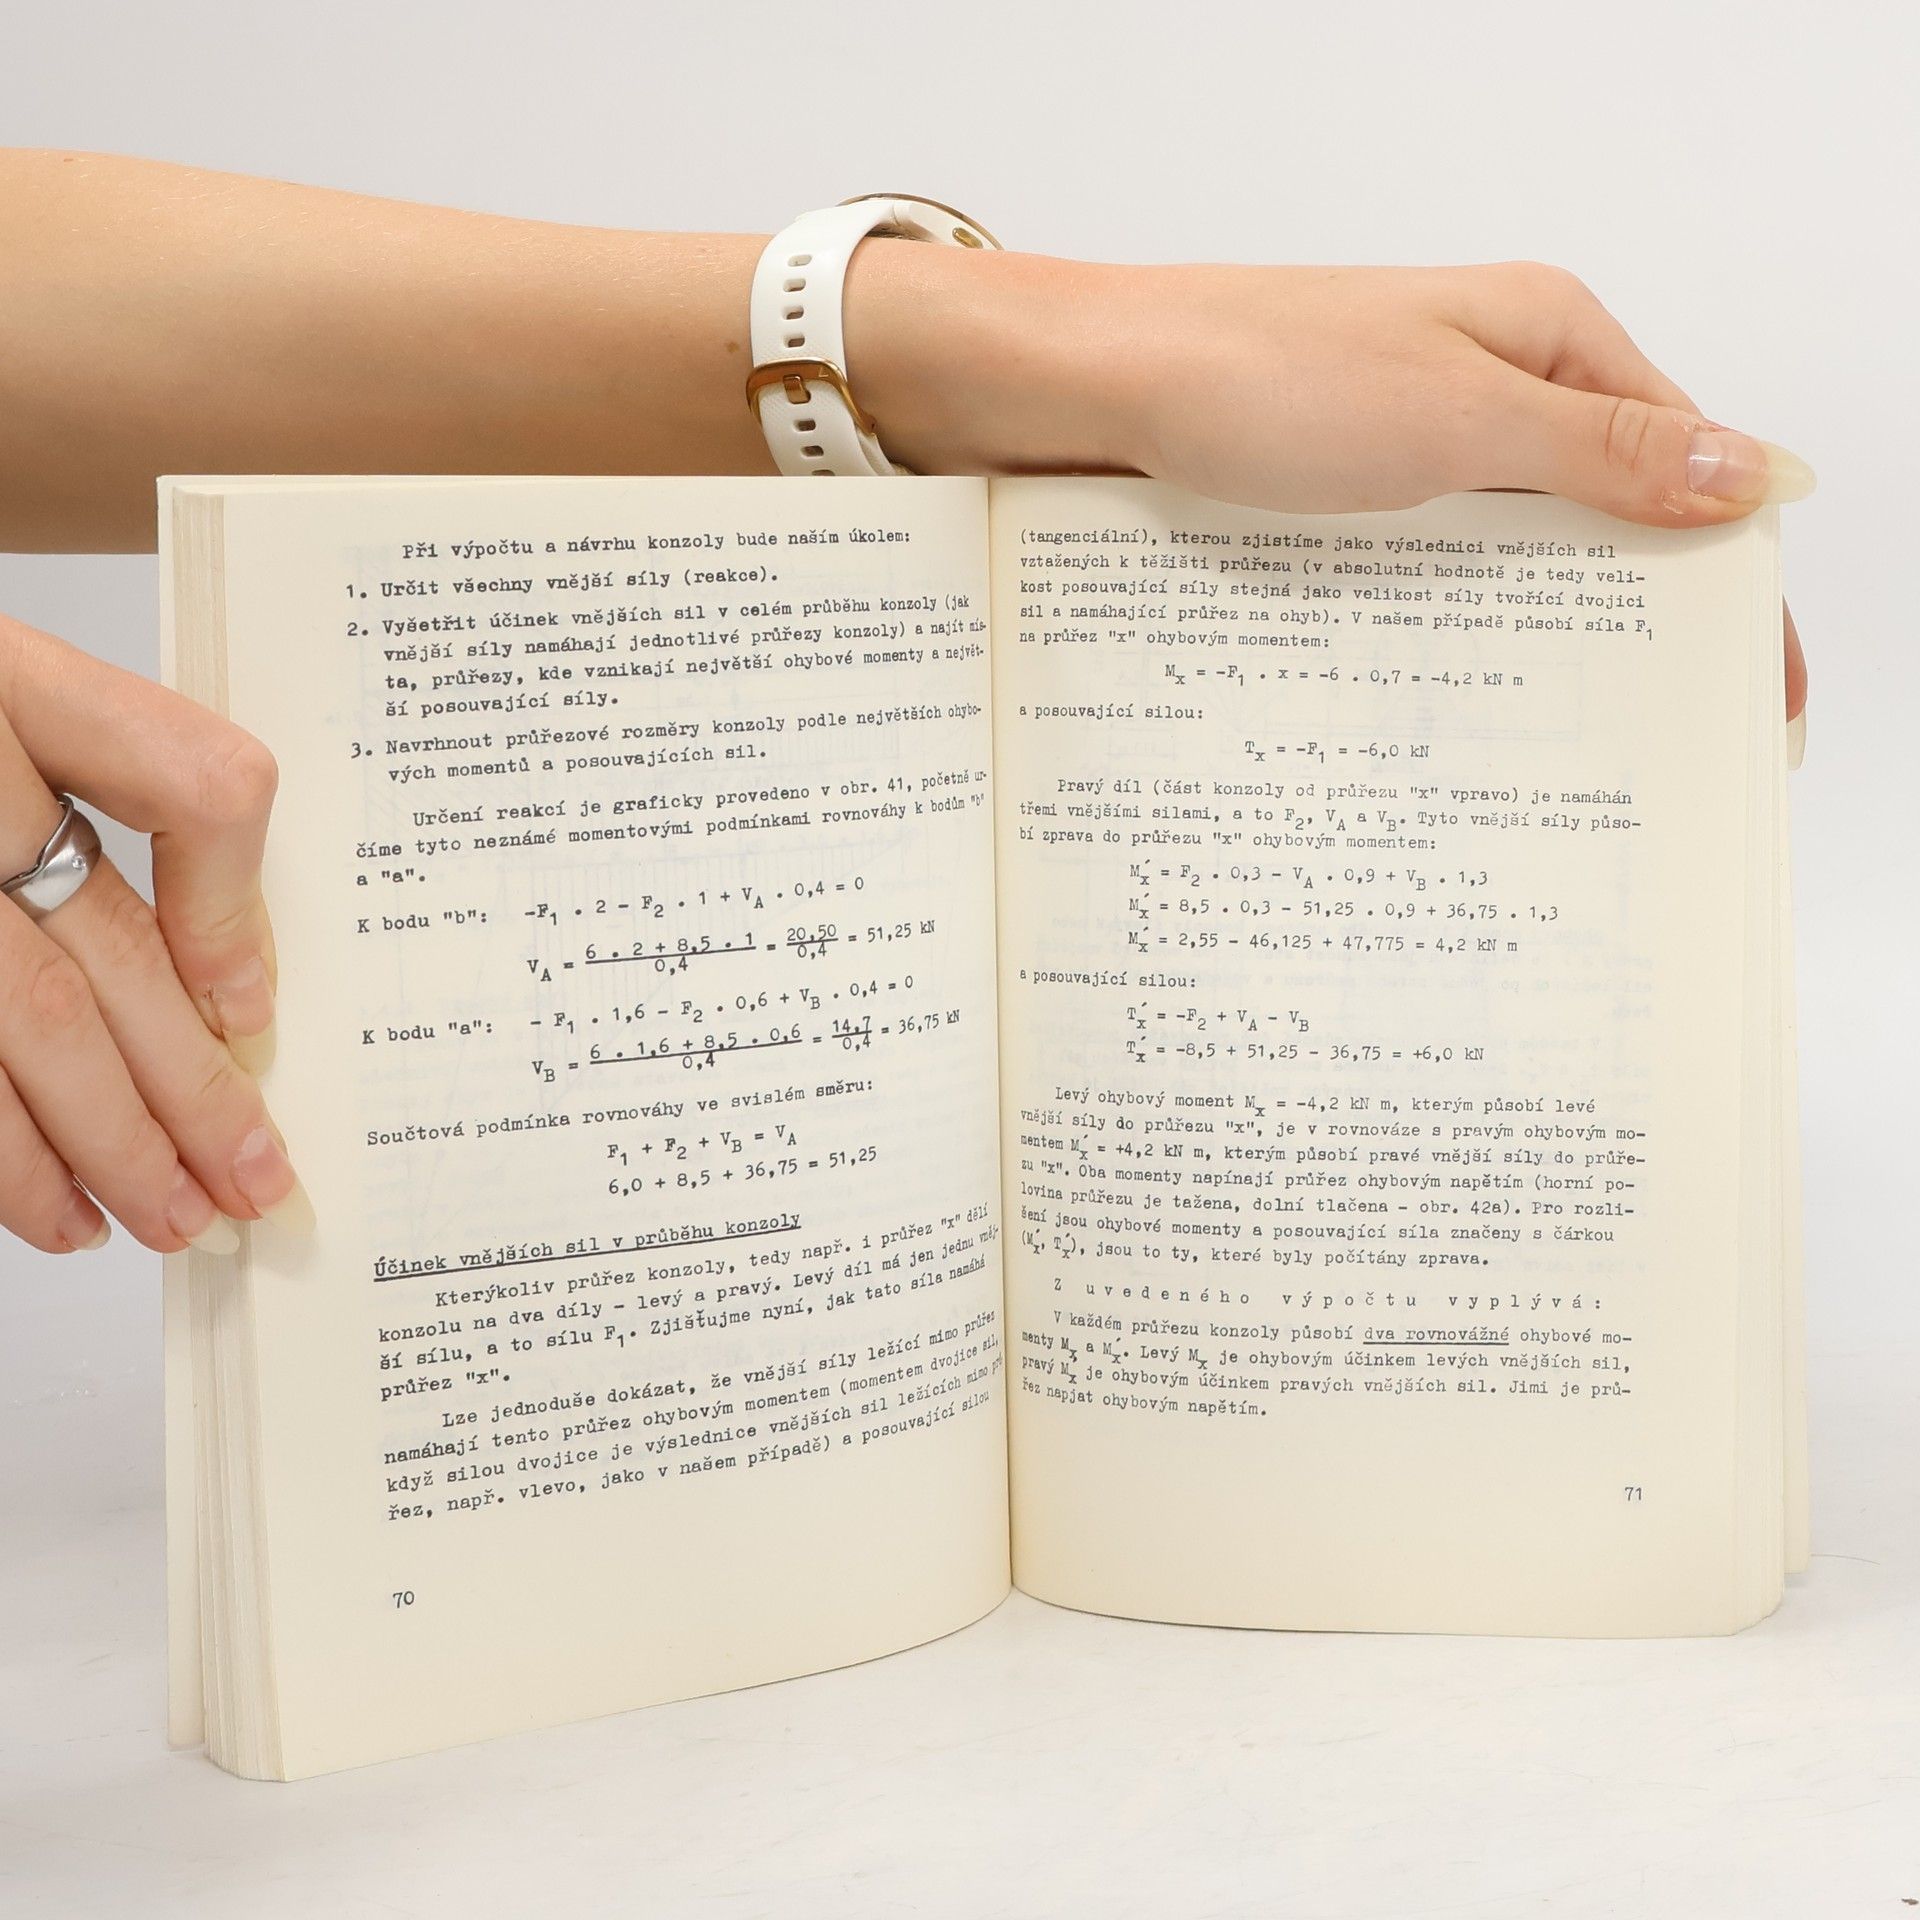 Při výpočtu a návrhu konzoly bude naším úkolem:
1. Určit všechny vnější síly (reakce).
2. Vyšetřit účinek vnějších sil v celém průběhu konzoly (jak
vnější síly namáhají jednotlivé průřezy konzoly) a najít mís-
ta, průřezy, kde vznikají největší ohybové momenty a největ-
ší posouvající síly.
3. Navrhnout průřezové rozměry konzoly podle největších ohybo-
vých momentů a posouvajících sil.
Určení reakcí je graficky provedeno v obr. 41, početně ur-
číme tyto neznámé momentovými podmínkami rovnováhy k bodům "b"
a "a".
K bodu "b": -F₁ . 2 - F₂ . 1 + V_A . 0,4 = 0
V_A = (6 . 2 + 8,5 . 1)/0,4 = 20,50/0,4 = 51,25 kN
K bodu "a": - F₁ . 1,6 - F₂ . 0,6 + V_B . 0,4 = 0
V_B = (6 . 1,6 + 8,5 . 0,6)/0,4 = 14,7/0,4 = 36,75 kN
Součtová podmínka rovnováhy ve svislém směru:
F₁ + F₂ + V_B = V_A
6,0 + 8,5 + 36,75 = 51,25
Účinek vnějších sil v průběhu konzoly
Kterýkoliv průřez konzoly, tedy např. i průřez "x" dělí
konzolu na dva díly - levý a pravý. Levý díl má jen jednu vněj-
ší sílu, a to sílu F₁. Zjišťujme nyní, jak tato síla namáhá
průřez "x".
Lze jednoduše dokázat, že vnější síly ležící mimo průřez
namáhají tento průřez ohybovým momentem (momentem dvojice sil,
když silou dvojice je výslednice vnějších sil ležících mimo prů-
řez, např. vlevo, jako v našem případě) a posouvající silou
70
(tangenciální), kterou zjistíme jako výslednici vnějších sil
vztažených k těžišti průřezu (v absolutní hodnotě je tedy veli-
kost posouvající síly stejná jako velikost síly tvořící dvojici
sil a namáhající průřez na ohyb). V našem případě působí síla F₁
na průřez "x" ohybovým momentem:
M_x = -F₁ . x = -6 . 0,7 = -4,2 kN m
a posouvající silou:
T_x = -F₁ = -6,0 kN
Pravý díl (část konzoly od průřezu "x" vpravo) je namáhán
třemi vnějšími silami, a to F₂, V_A a V_B. Tyto vnější síly půso-
bí zprava do průřezu "x" ohybovým momentem:
M_x´ = F₂ . 0,3 - V_A . 0,9 + V_B . 1,3
M_x´ = 8,5 . 0,3 - 51,25 . 0,9 + 36,75 . 1,3
M_x´ = 2,55 - 46,125 + 47,775 = 4,2 kN m
a posouvající silou:
T_x´ = -F₂ + V_A - V_B
T_x´ = -8,5 + 51,25 - 36,75 = +6,0 kN
Levý ohybový moment M_x = -4,2 kN m, kterým působí levé
vnější síly do průřezu "x", je v rovnováze s pravým ohybovým mo-
mentem M_x´ = +4,2 kN m, kterým působí pravé vnější síly do průře-
zu "x". Oba momenty napínají průřez ohybovým napětím (horní po-
lovina průřezu je tažena, dolní tlačena - obr. 42a). Pro rozli-
šení jsou ohybové momenty a posouvající síla značeny s čárkou
(M_x´, T_x´), jsou to ty, které byly počítány zprava.
Z uvedeného výpočtu vyplývá:
V každém průřezu konzoly působí dva rovnovážné ohybové mo-
menty M_x a M_x´. Levý M_x je ohybovým účinkem levých vnějších sil,
pravý M_x´ je ohybovým účinkem pravých vnějších sil. Jimi je prů-
řez napjat ohybovým napětím.
71